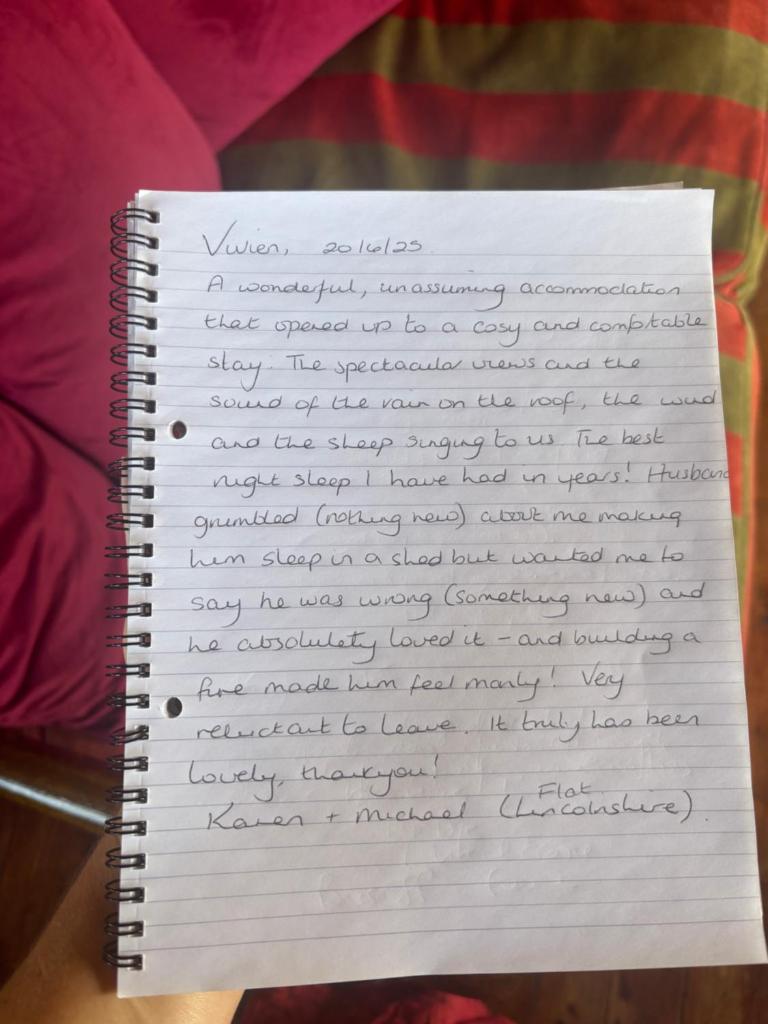 Vivien, 20/6/25
A wonderful, unassuming accommodation
that opened up to a cosy and comfortable
stay. The spectacular views and the
sound of the rain on the roof, the wind
and the sheep singing to us. The best
night sleep I have had in years! Husband
grumbled (nothing new) about me making
him sleep in a shed but wanted me to
say he was wrong (something new) and
he absolutely loved it - and building a
fire made him feel manly! Very
reluctant to leave. It truly has been
lovely, thankyou!
Karen + Michael (Flat Lincolnshire).